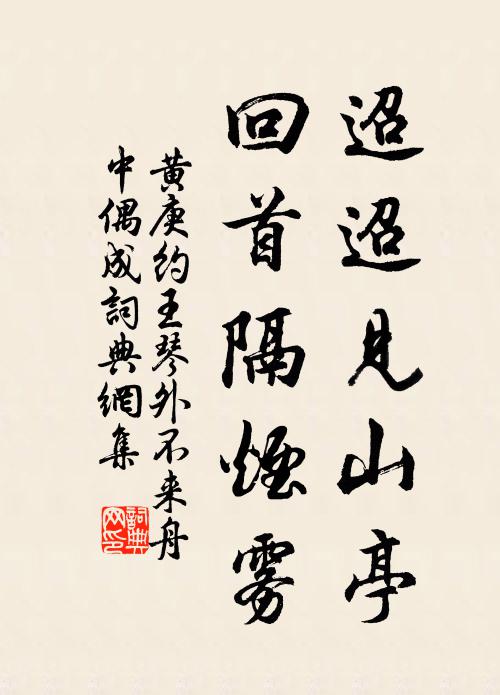 迢迢見山亭
回首隔煙雾
黄庚約王琴外不来舟
中偶成詞典網集
詞典
网印